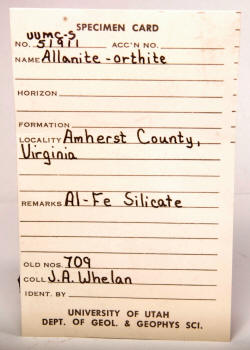 SPECIMEN CARD
UUMC-S
NO. 51911 ACC'N NO.
NAME Allanite-orthite
HORIZON
FORMATION
LOCALITY Amherst County,
Virginia
REMARKS Al-Fe Silicate
OLD NOS. 709
COLL J.A. Whelan
IDENT. BY
UNIVERSITY OF UTAH
DEPT. OF GEOL. & GEOPHYS SCI.